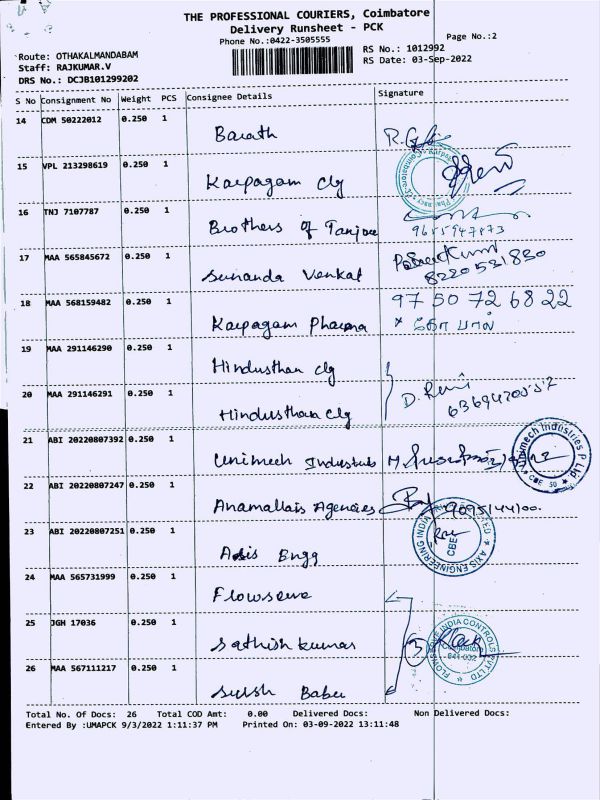 THE PROFESSIONAL COURIERS, Coimbatore
Delivery Runsheet - PCK
Page No.:2
Phone No.:0422-3505555
Route: OTHAKALMANDABAM
RS No.: 1012992
Staff: RAJKUMAR.V
RS Date: 03-Sep-2022
DRS No.: DCJB101299202
S No Consignment No Weight PCS Consignee Details Signature
14 CDM 50222012 0.250 1
Barath
15 VPL 213298619 0.250 1
Karpagam clg
16 TNJ 7107787 0.250 1
Brothers of Tanjore
17 MAA 565845672 0.250 1
Sunanda Venkat
8220531830
18 MAA 568159482 0.250 1
9750726822
Karpagam Pharma
19 MAA 291146290 0.250 1
Hindusthan clg
20 MAA 291146291 0.250 1
Hindusthan clg
21 ABI 20220807392 0.250 1
Unimech Industries
Unimech Industries P Ltd
22 ABI 20220807247 0.250 1
Anamallais Agencies
9095144100.
23 ABI 20220807251 0.250 1
Axis Engg
AXIS ENGINEERING INDIA
CBE
24 MAA 565731999 0.250 1
Flowserve
25 JGH 17036 0.250 1
Sathish kumar
3
FLOWSERVE INDIA CONTROLS PVT LTD
Coimbatore
641-032
26 MAA 567111217 0.250 1
Sursh Babu
Total No. Of Docs: 26 Total COD Amt: 0.00 Delivered Docs: Non Delivered Docs:
Entered By :UMAPCK 9/3/2022 1:11:37 PM Printed On: 03-09-2022 13:11:48